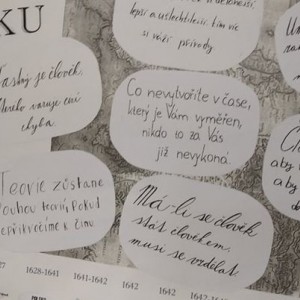 KU
lepší a ušlechtilejší, tím více
si váží přírody
Šťastný je člověk,
kterého varuje cizí
chyba
Co nevytvoříte v čase,
který je Vám vyměřen,
nikdo to za Vás
již nevykoná.
Teorie zůstane
pouhou teorií, pokud
nepřikročíme k činu
Má-li se člověk
stát člověkem,
musí se vzdělat
aby
a by
1628-1641
1641-1642
1642
1642